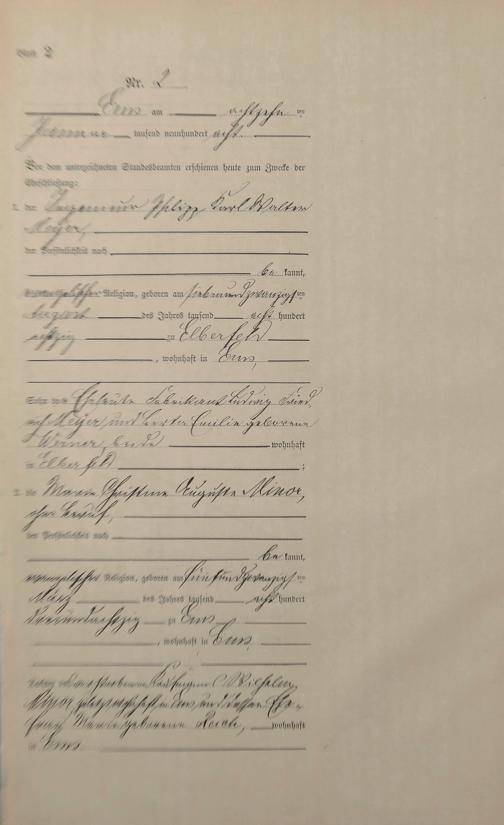 Blatt 2
Nr. 2
Ems am achtzehnten
Januar tausend neunhundert acht.
Vor dem unterzeichneten Standesbeamten erschienen heute zum Zwecke der
Eheschließung:
1. der Ingenieur Philipp Karl Walter
Meyer,
der Persönlichkeit nach
be kannt,
evangelischer Religion, geboren am siebenundzwanzigsten
August des Jahres tausend acht hundert
achtzig zu Elberfeld
, wohnhaft in Ems,
Sohn der Eheleute Fabrikant Ludwig Fried
rich Meyer und Berta Emilie geborene
Werner, beide wohnhaft
in Elberfeld ;
2. die Marie Christine Auguste Minor,
ohne Beruf,
der Persönlichkeit nach
be kannt,
evangelischer Religion, geboren am fünfundzwanzigsten
März des Jahres tausend acht hundert
dreiundachtzig zu Ems
, wohnhaft in Ems,
Tochter des verstorbenen Wilhelm
Minor, zuletzt wohnhaft in Ems und dessen Ehe-
frau Marie geborene Reich, wohnhaft
in Ems